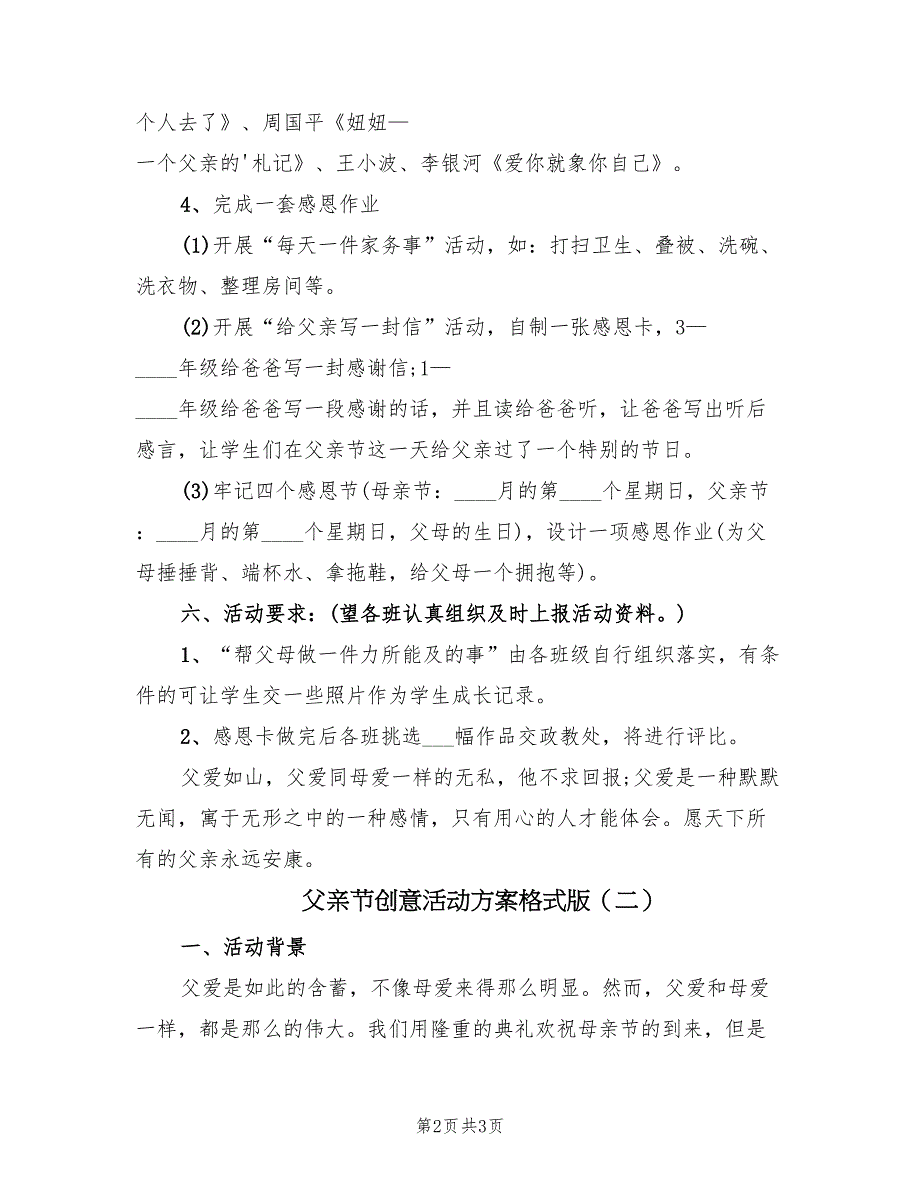 个人去了》、周国平《妞妞—
一个父亲的'札记》、王小波、李银河《爱你就象你自己》。
4、完成一套感恩作业
(1)开展“每天一件家务事”活动，如：打扫卫生、叠被、洗碗、
洗衣物、整理房间等。
(2)开展“给父亲写一封信”活动，自制一张感恩卡，3—
____年级给爸爸写一封感谢信;1—
____年级给爸爸写一段感谢的话，并且读给爸爸听，让爸爸写出听后
感言，让学生们在父亲节这一天给父亲过了一个特别的节日。
(3)牢记四个感恩节(母亲节：____月的第____个星期日，父亲节
：____月的第____个星期日，父母的生日)，设计一项感恩作业(为父
母捶捶背、端杯水、拿拖鞋，给父母一个拥抱等)。
六、活动要求：(望各班认真组织及时上报活动资料。)
1、“帮父母做一件力所能及的事”由各班级自行组织落实，有条
件的可让学生交一些照片作为学生成长记录。
2、感恩卡做完后各班挑选___幅作品交政教处，将进行评比。
父爱如山，父爱同母爱一样的无私，他不求回报;父爱是一种默默
无闻，寓于无形之中的一种感情，只有用心的人才能体会。愿天下所
有的父亲永远安康。
父亲节创意活动方案格式版（二）
一、活动背景
父爱是如此的含蓄，不像母爱来得那么明显。然而，父爱和母爱
一样，都是那么的伟大。我们用隆重的典礼欢祝母亲节的到来，但是
第2页 共3页